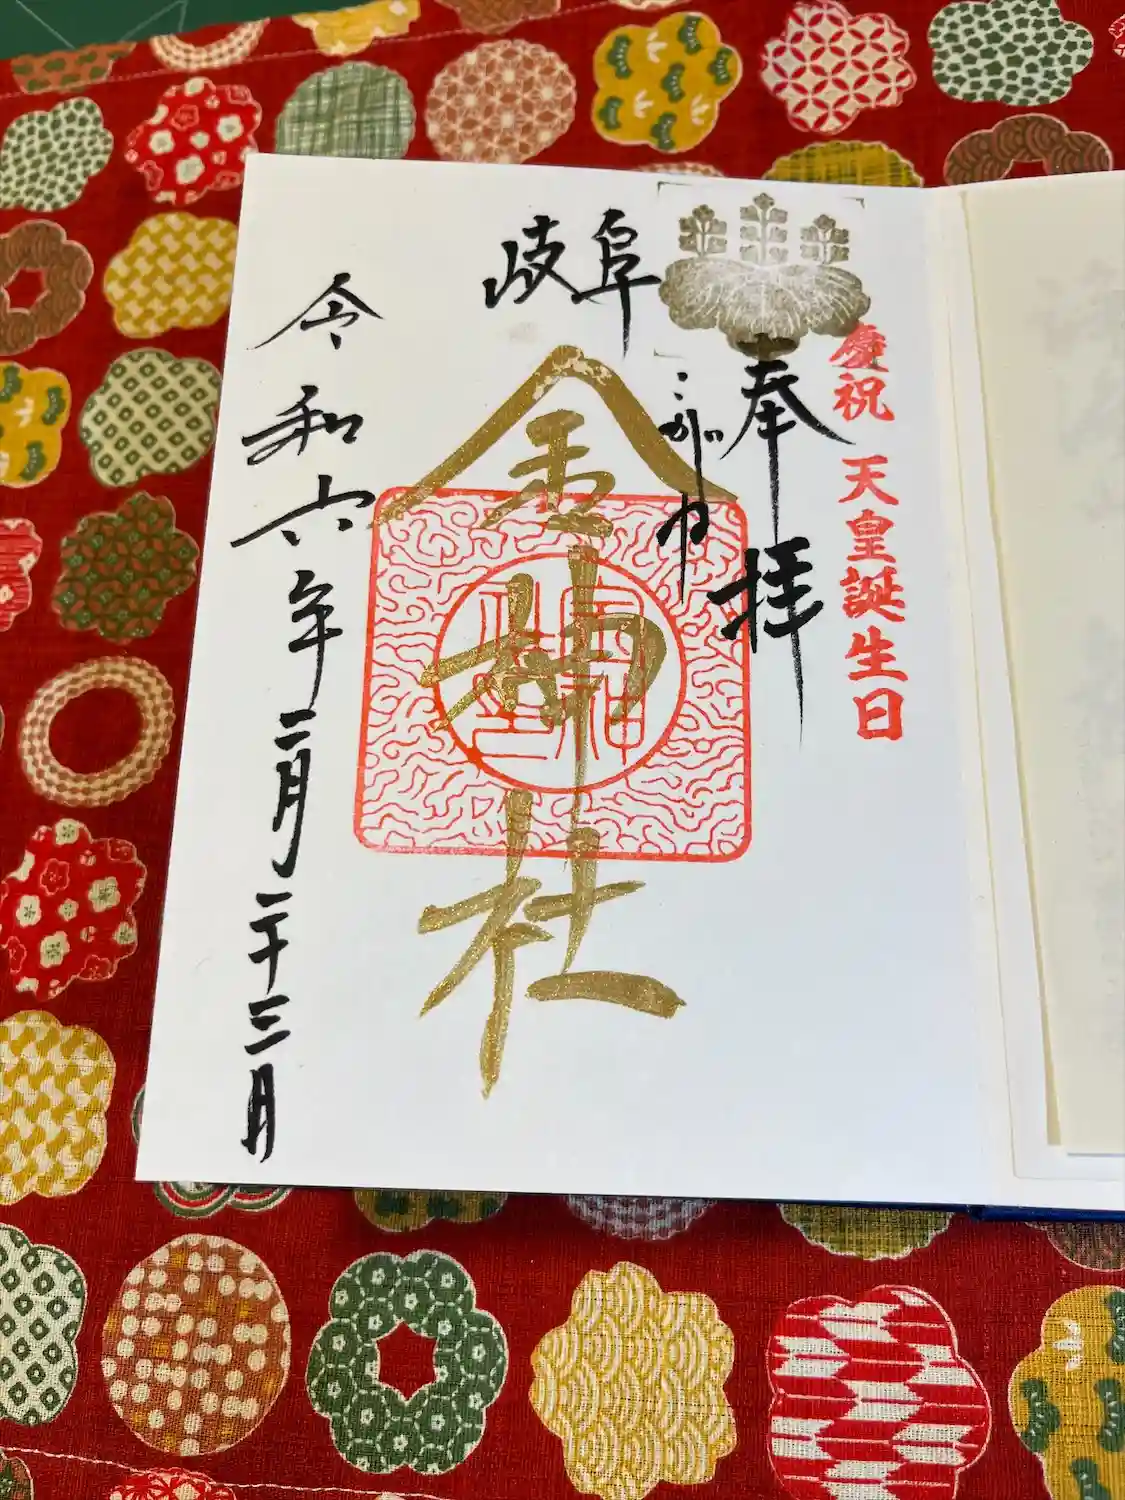 慶祝 天皇誕生日
奉拝
こがね
岐阜
金神社
令和六年二月二十三日